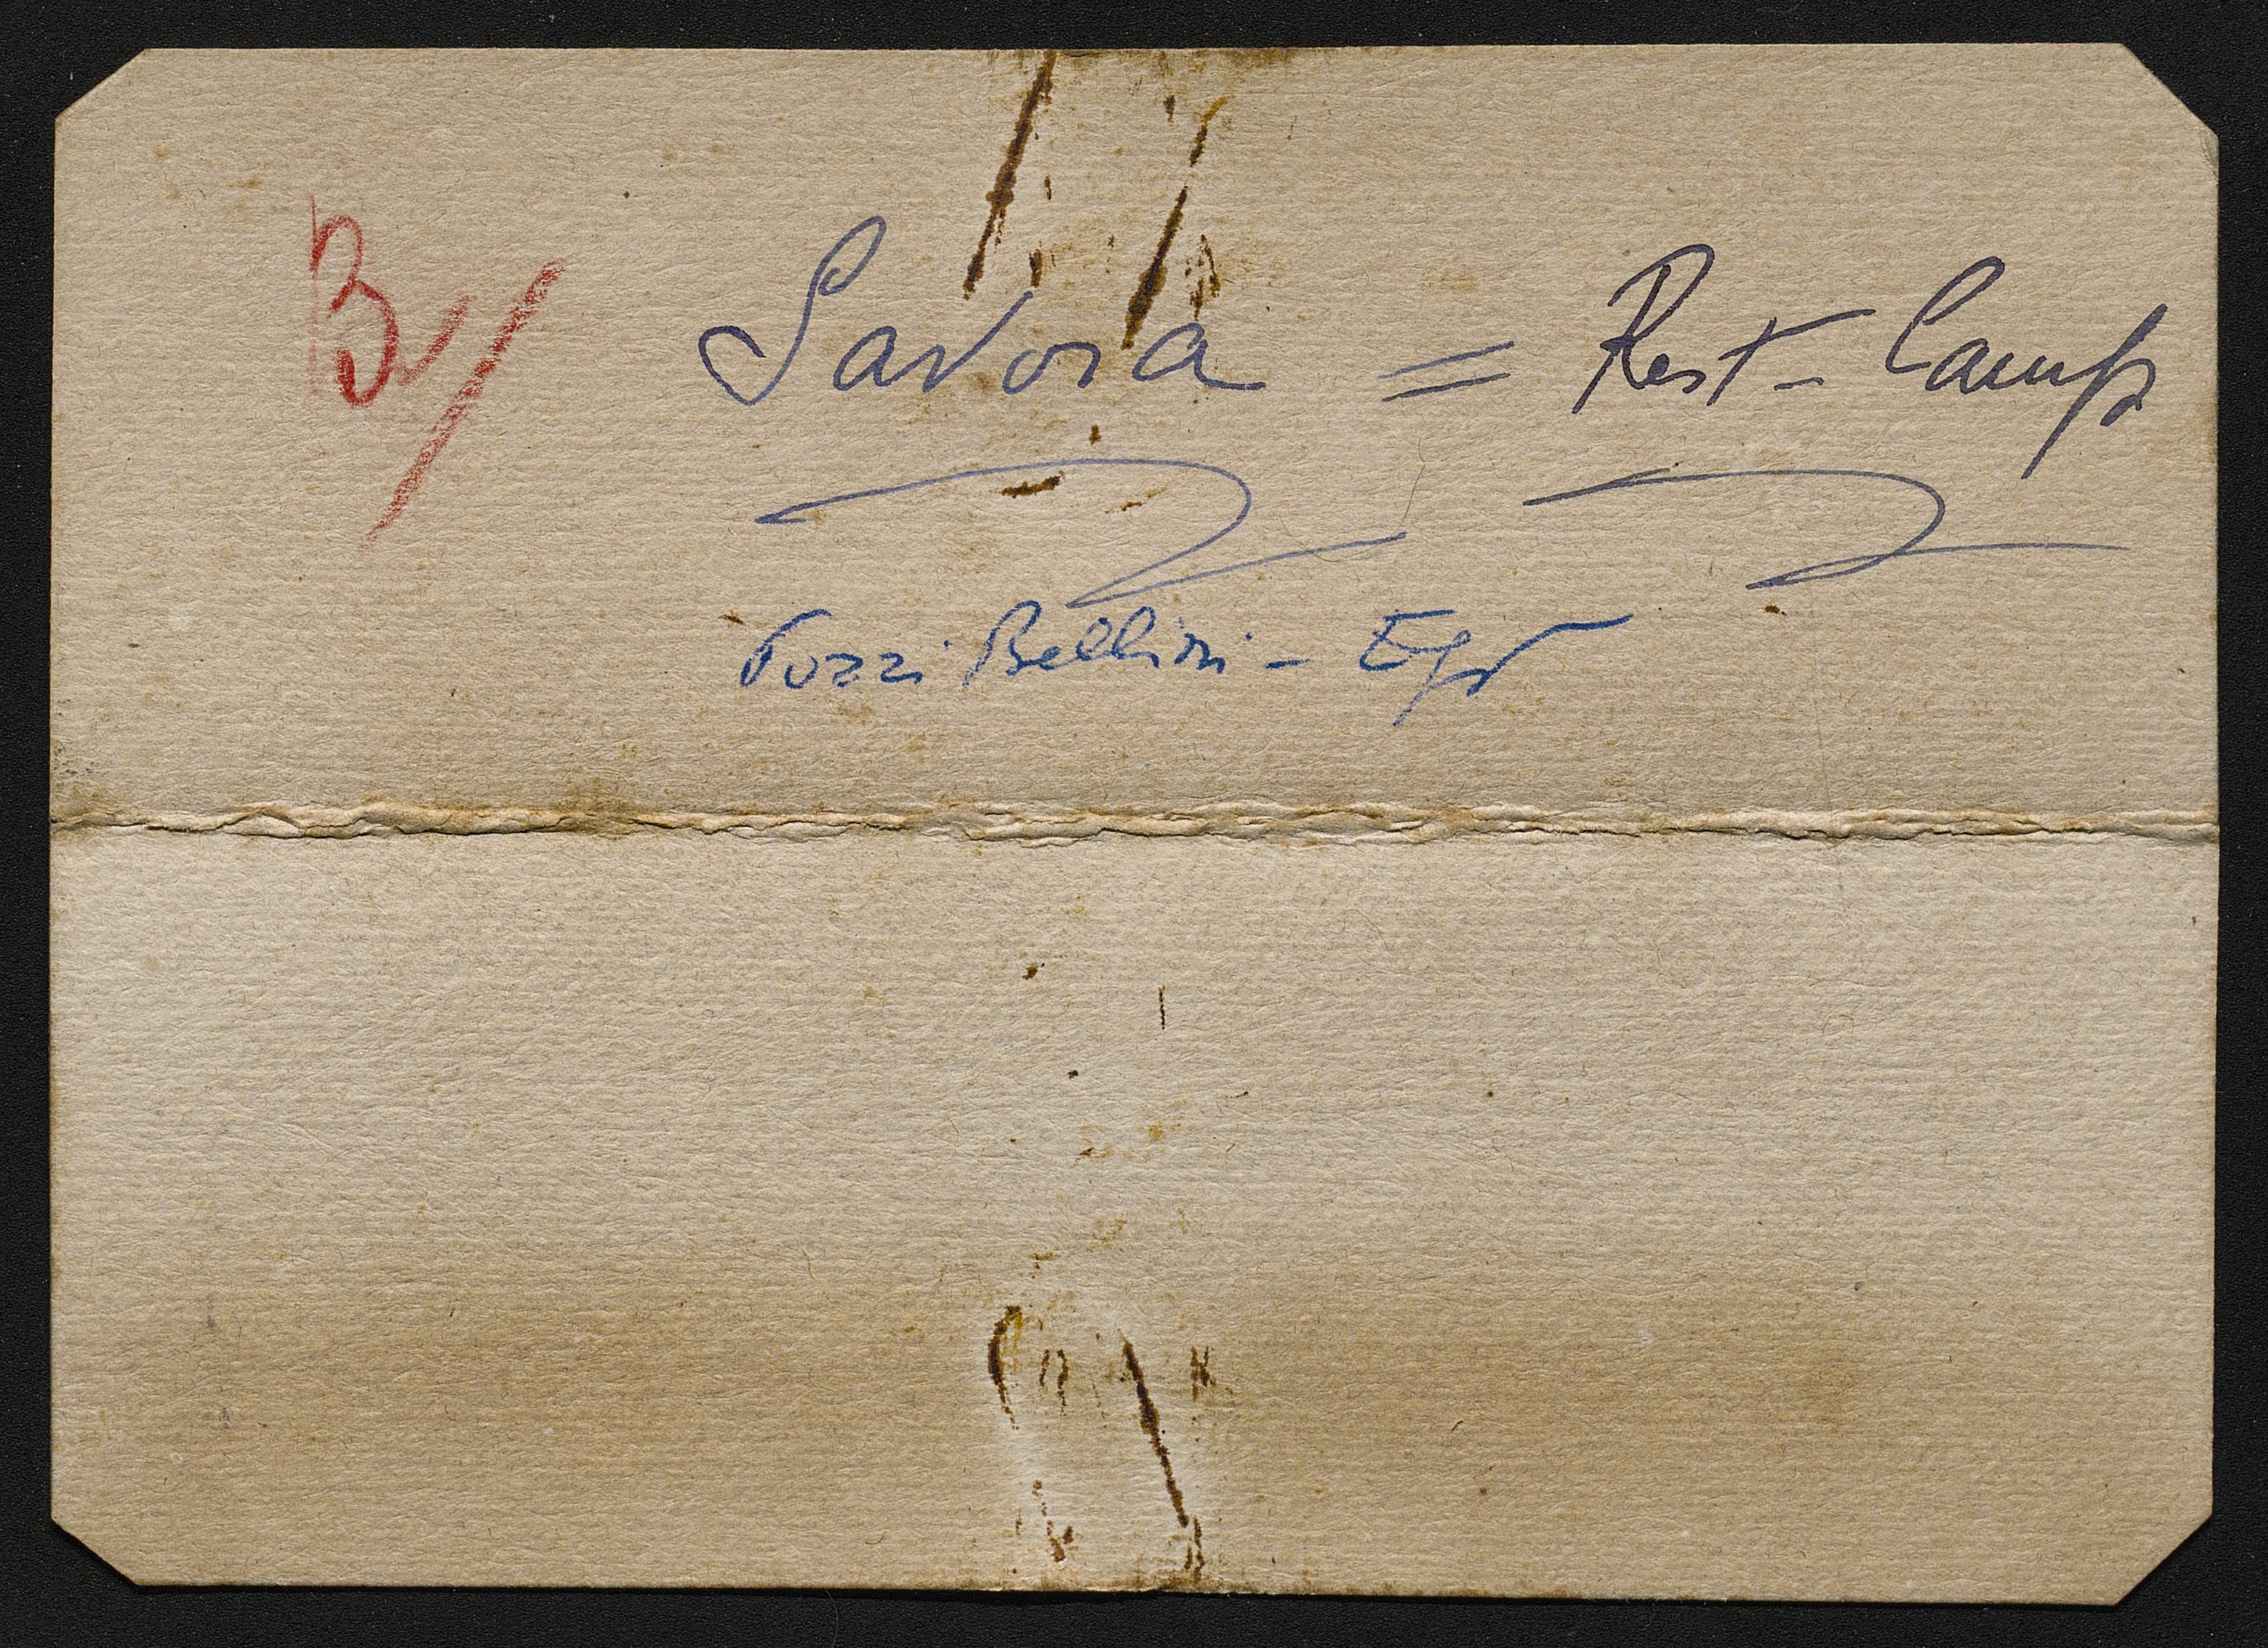 B/ Savoia = Rest - Camp
Pozzi Bellini -